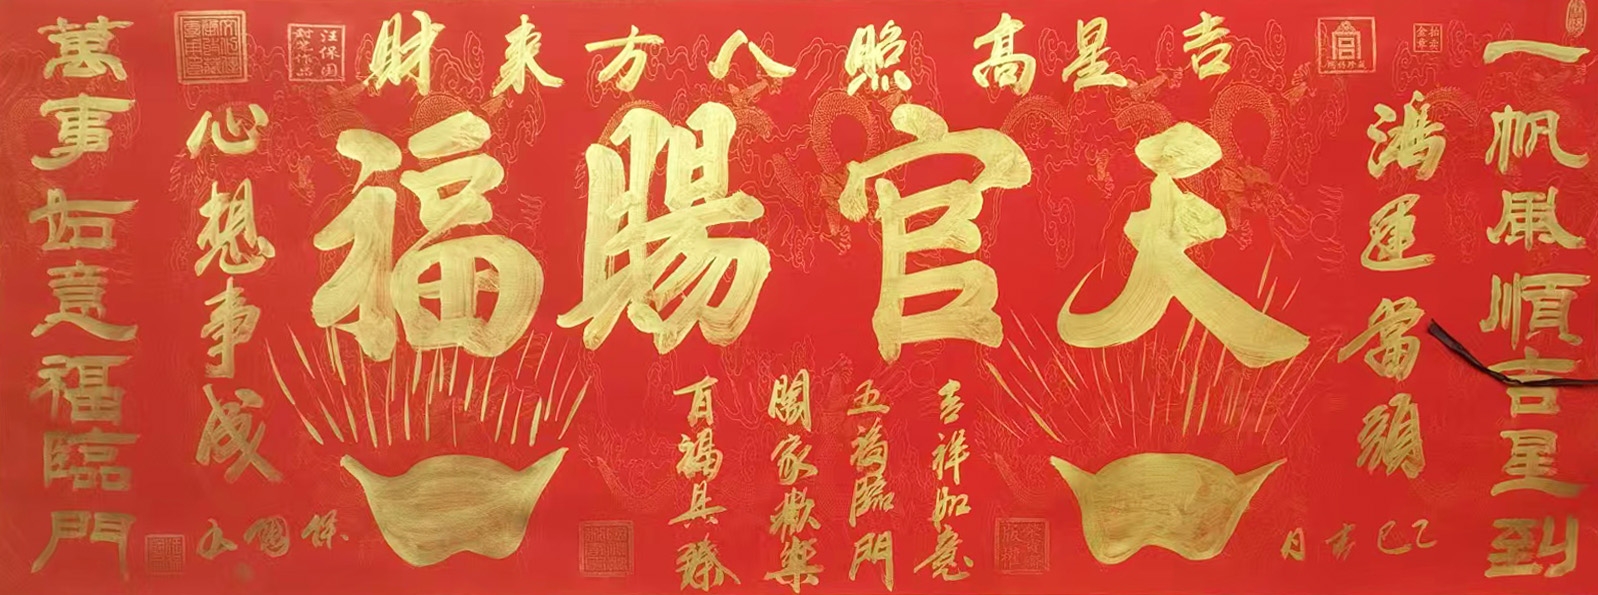 一帆風順吉星到
鴻運當頭
吉星高照八方來財
天官賜福
吉祥如意
五福臨門
闔家歡樂
百福具臻
心想事成
萬事如意福臨門
乙巳吉月
保國
汪保国
封笔作品
拍卖
金章